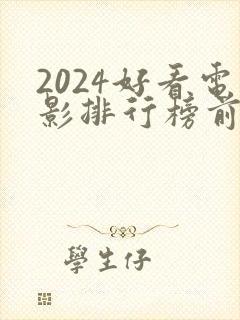 2024好看电
影排行榜前
學生仔